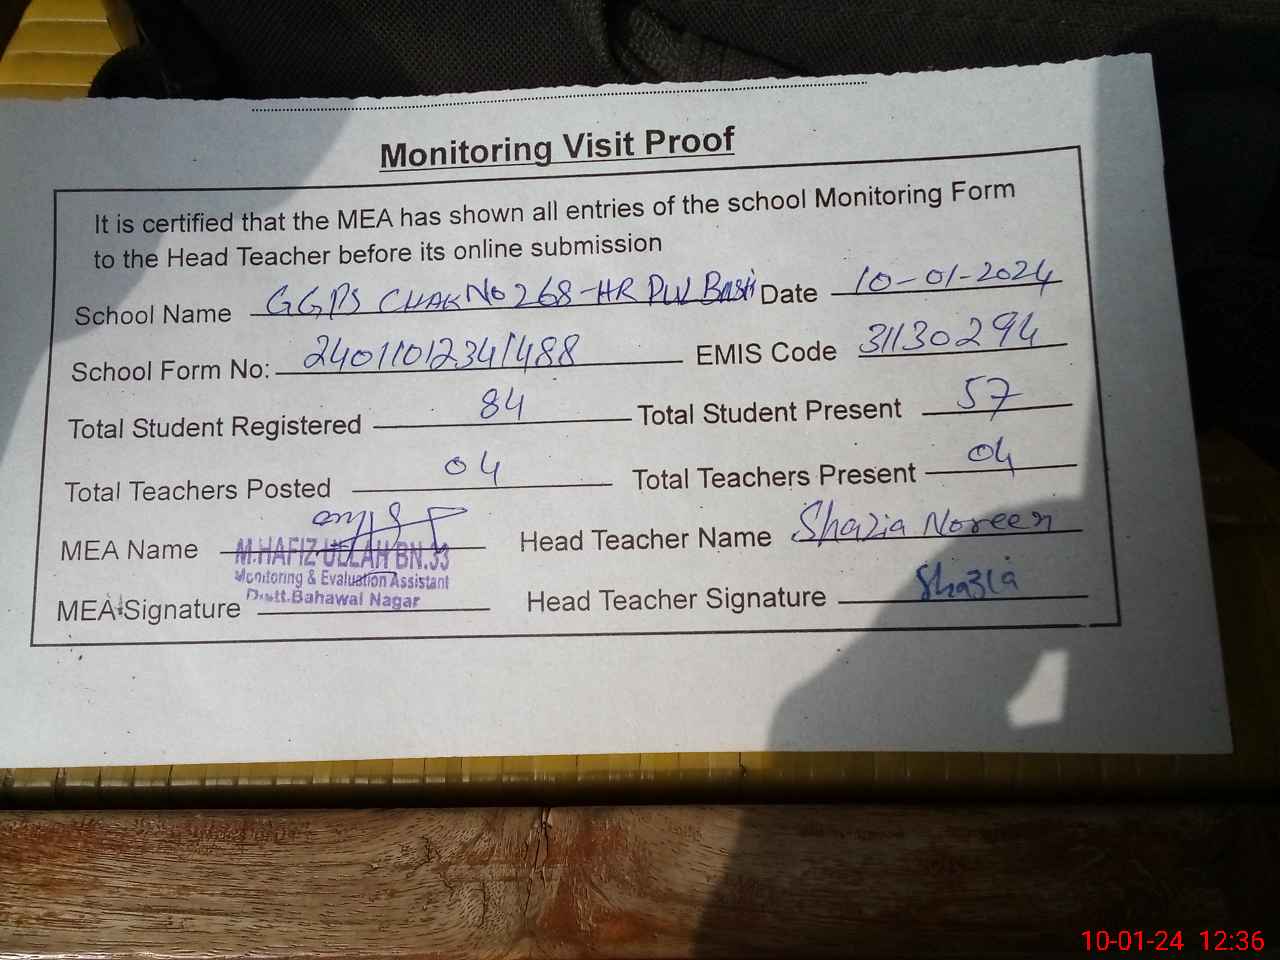 Monitoring Visit Proof
It is certified that the MEA has shown all entries of the school Monitoring Form
to the Head Teacher before its online submission
School Name GGPS CHAK No 268-HR PW Basti Date 10-01-2024
School Form No: 24011012341488 EMIS Code 31130294
Total Student Registered 84 Total Student Present 57
Total Teachers Posted 04 Total Teachers Present 04
MEA Name M.HAFIZ ULLAH BN.33 Head Teacher Name Shazia Noreen
Monitoring & Evaluation Assistant
Distt.Bahawal Nagar
MEA Signature Head Teacher Signature Shazia
10-01-24 12:36